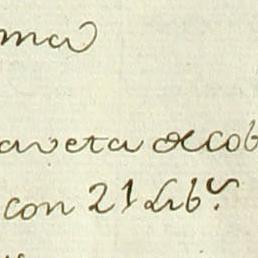 ma
aveta de cob
con 21 Lib.s